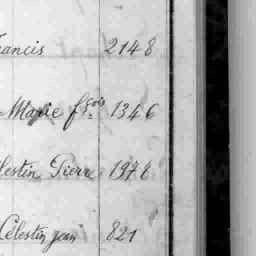 ancis 2148
Marie fçois 1346
lestin Pierre 1976
Célestin jean 821